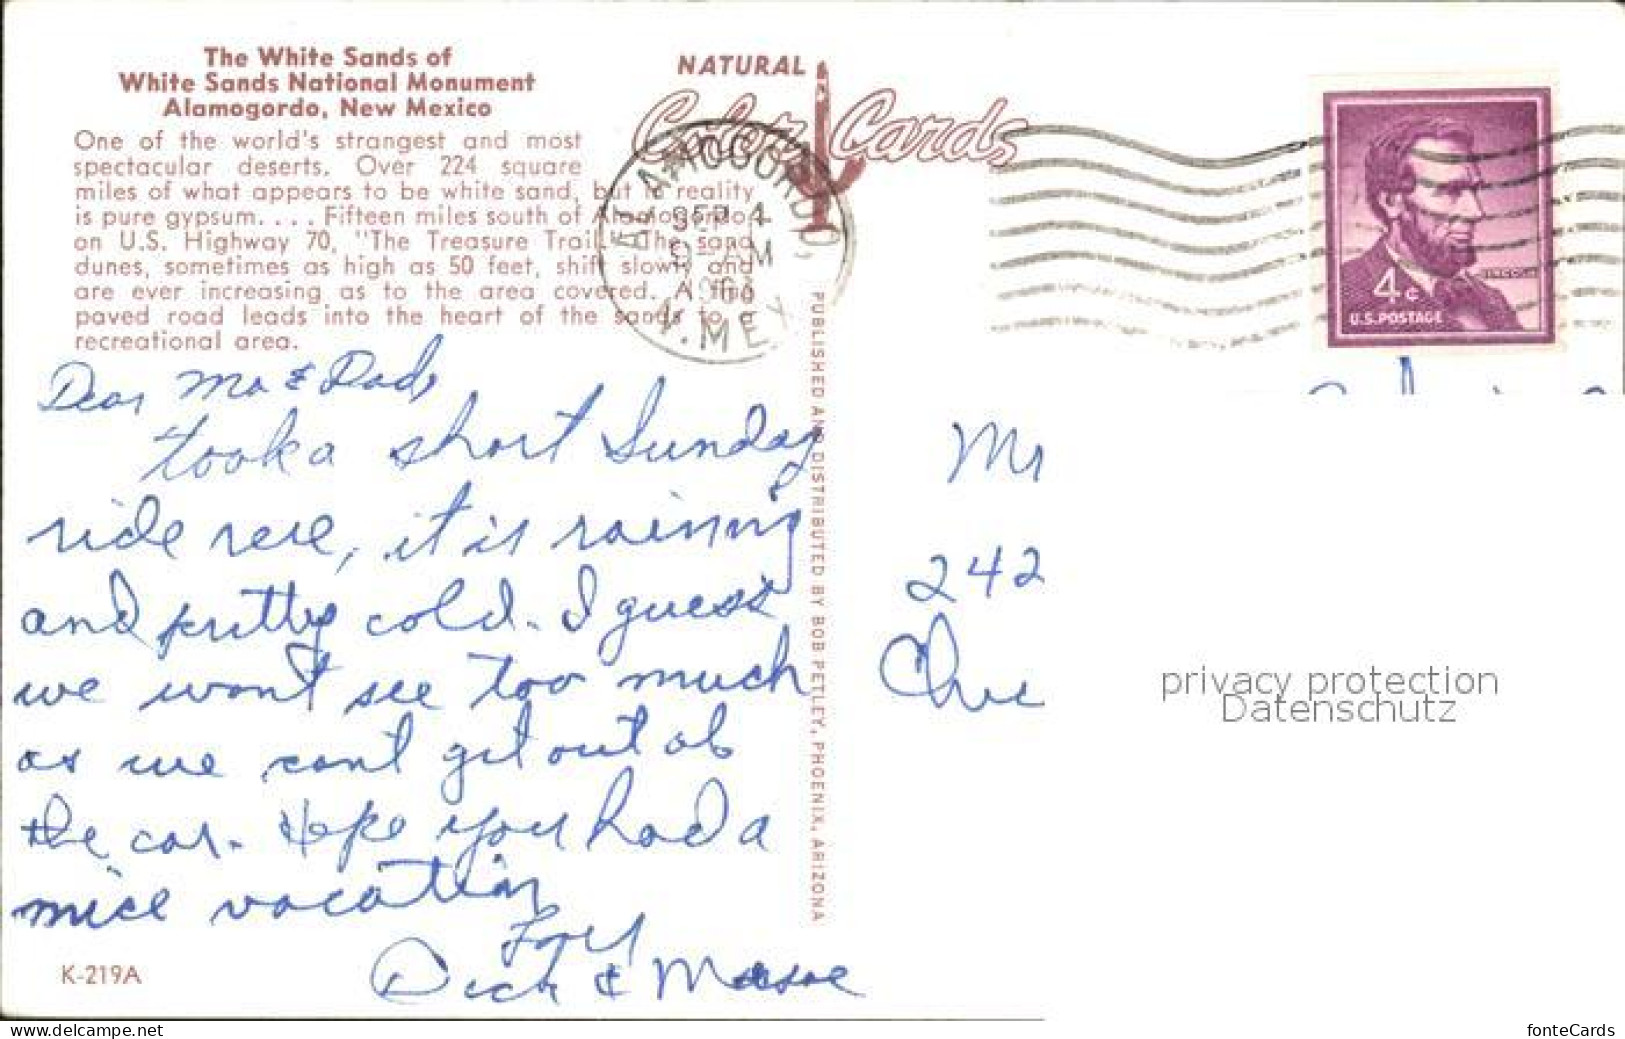 The White Sands of
White Sands National Monument
Alamogordo, New Mexico
One of the world's strangest and most
spectacular deserts. Over 224 square
miles of what appears to be white sand, but in reality
is pure gypsum. . . . Fifteen miles south of Alamogordo
on U.S. Highway 70, "The Treasure Trail." The sand
dunes, sometimes as high as 50 feet, shift slowly and
are ever increasing as to the area covered. A fine
paved road leads into the heart of the sands to a
recreational area.
NATURAL
Color Cards
ALAMOGORDO,
SEP 4
AM
N. MEX.
LINCOLN
4¢
U.S. POSTAGE
Dear Ma & Dad,
took a short Sunday
ride here, it is raining
and pretty cold. I guess
we wont see too much
as we cant get out of
the car. Hope you had a
nice vacation
Love
Dick &
K-219A
PUBLISHED AND DISTRIBUTED BY BOB PETLEY, PHOENIX, ARIZONA
Mr
242
privacy protection
Datenschutz
www.delcampe.net
fonteCards